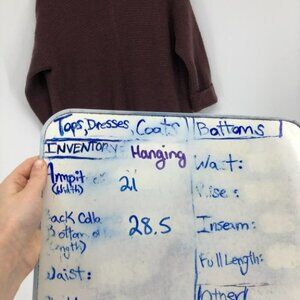 Tops, Dresses, Coats Bottoms
INVENTORY: Hanging
Armpit
(Width) 21
Waist:
Back
Bottom 28.5
(Length)
Inseam:
Full Length:
Waist:
Other